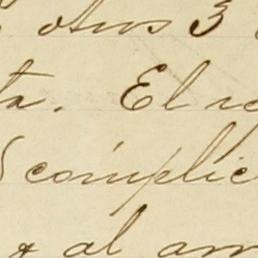 otros 3
ta. El re
complic
y al am